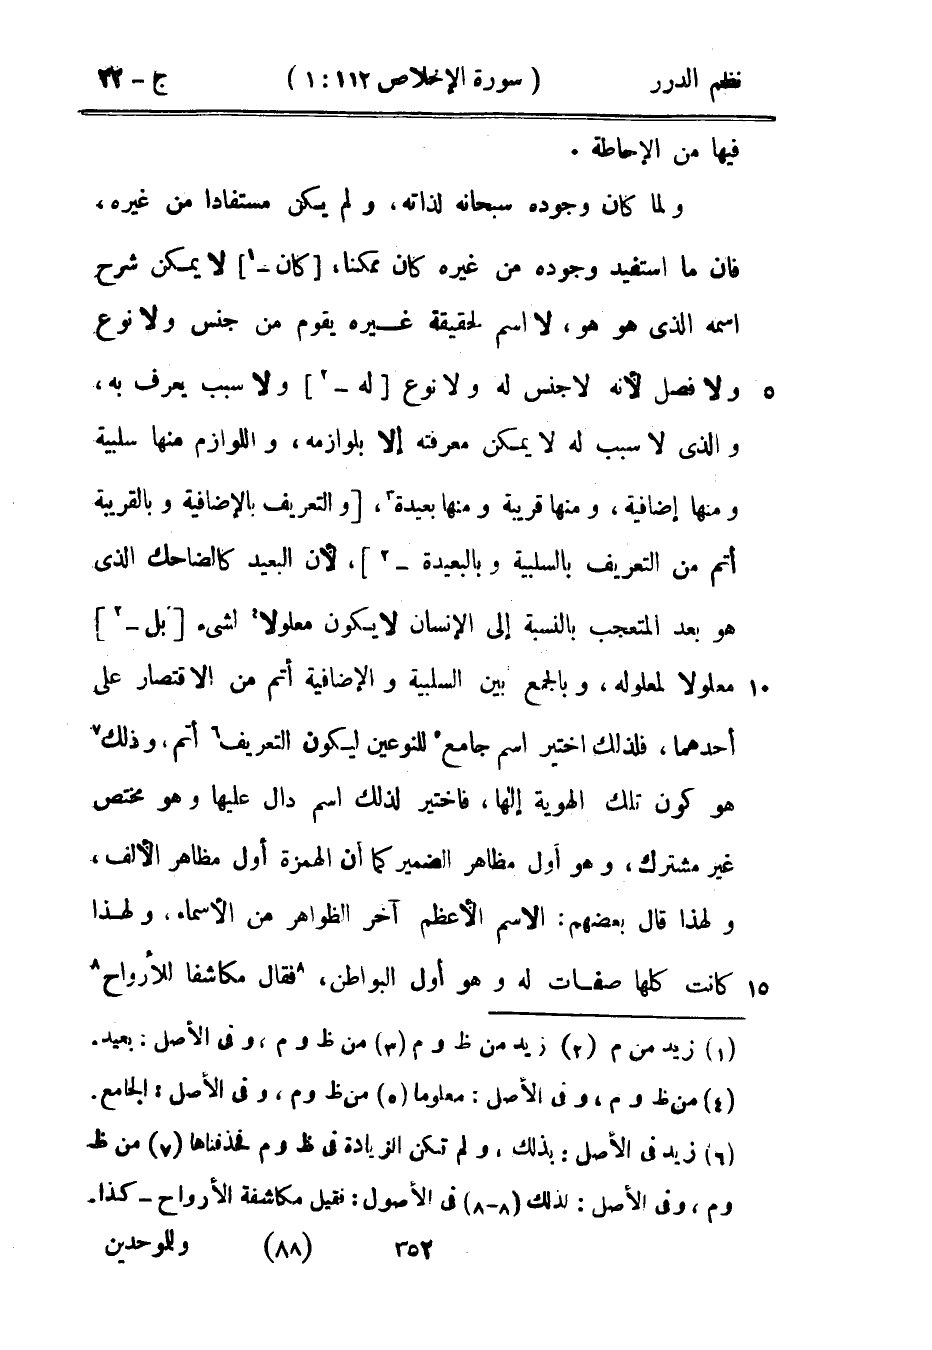 نظم الدرر ( سورة الإخلاص ١١٢ : ١ ) ج - ٢٢
فيها من الإحاطة .
و لما كان وجوده سبحانه لذاته، و لم يكن مستفادا من غيره،
فان ما استفيد وجوده من غيره كان ممكنا، [كان-١] لا يمكن شرح
اسمه الذى هو هو، لا اسم لحقيقة غيره يقوم من جنس ولا نوع
٥ ولا فصل لأنه لا جنس له ولا نوع [ له - ٢ ] ولا سبب يعرف به،
و الذى لا سبب له لا يمكن معرفته إلا بلوازمه، و اللوازم منها سلبية
و منها إضافية، و منها قريبة و منها بعيدة٣، [و التعريف بالإضافية و بالقريبة
أتم من التعريف بالسلبية و بالبعيدة - ٢ ]، لأن البعيد كالضاحك الذى
هو بعد المتعجب بالنسبة إلى الإنسان لا يكون معلولا٤ لشىء [بل-٢]
١٠ معلولا لمعلوله، و بالجمع بين السلبية و الإضافية أتم من الاقتصار على
أحدهما، فلذلك اختير اسم جامع٥ للنوعين ليكون التعريف٦ أتم، و ذلك٧
هو كون تلك الهوية إلها، فاختير لذلك اسم دال عليها و هو مختص
غير مشترك، و هو أول مظاهر الضمير كما أن الهمزة أول مظاهر الألف،
و لهذا قال بعضهم: الاسم الأعظم آخر الظواهر من الأسماء، و لهذا
١٥ كانت كلها صفات له و هو أول البواطن، ٨فقال مكاشفا للأرواح٨
(١) زيد من م (٢) زيد من ظ و م (٣) من ظ و م، و فى الأصل : بعيد.
(٤) من ظ و م، و فى الأصل : معلوما (٥) من ظ وم، و فى الأصل : الجامع.
(٦) زيد فى الأصل : بذلك ، و لم تكن الزيادة فى ظ و م فحذفناها (٧) من ظ
و م، وفى الأصل : لذلك (٨-٨) فى الأصول : فقيل مكاشفة الأرواح - كذا.
٣٥٢ (٨٨) وللموحدين